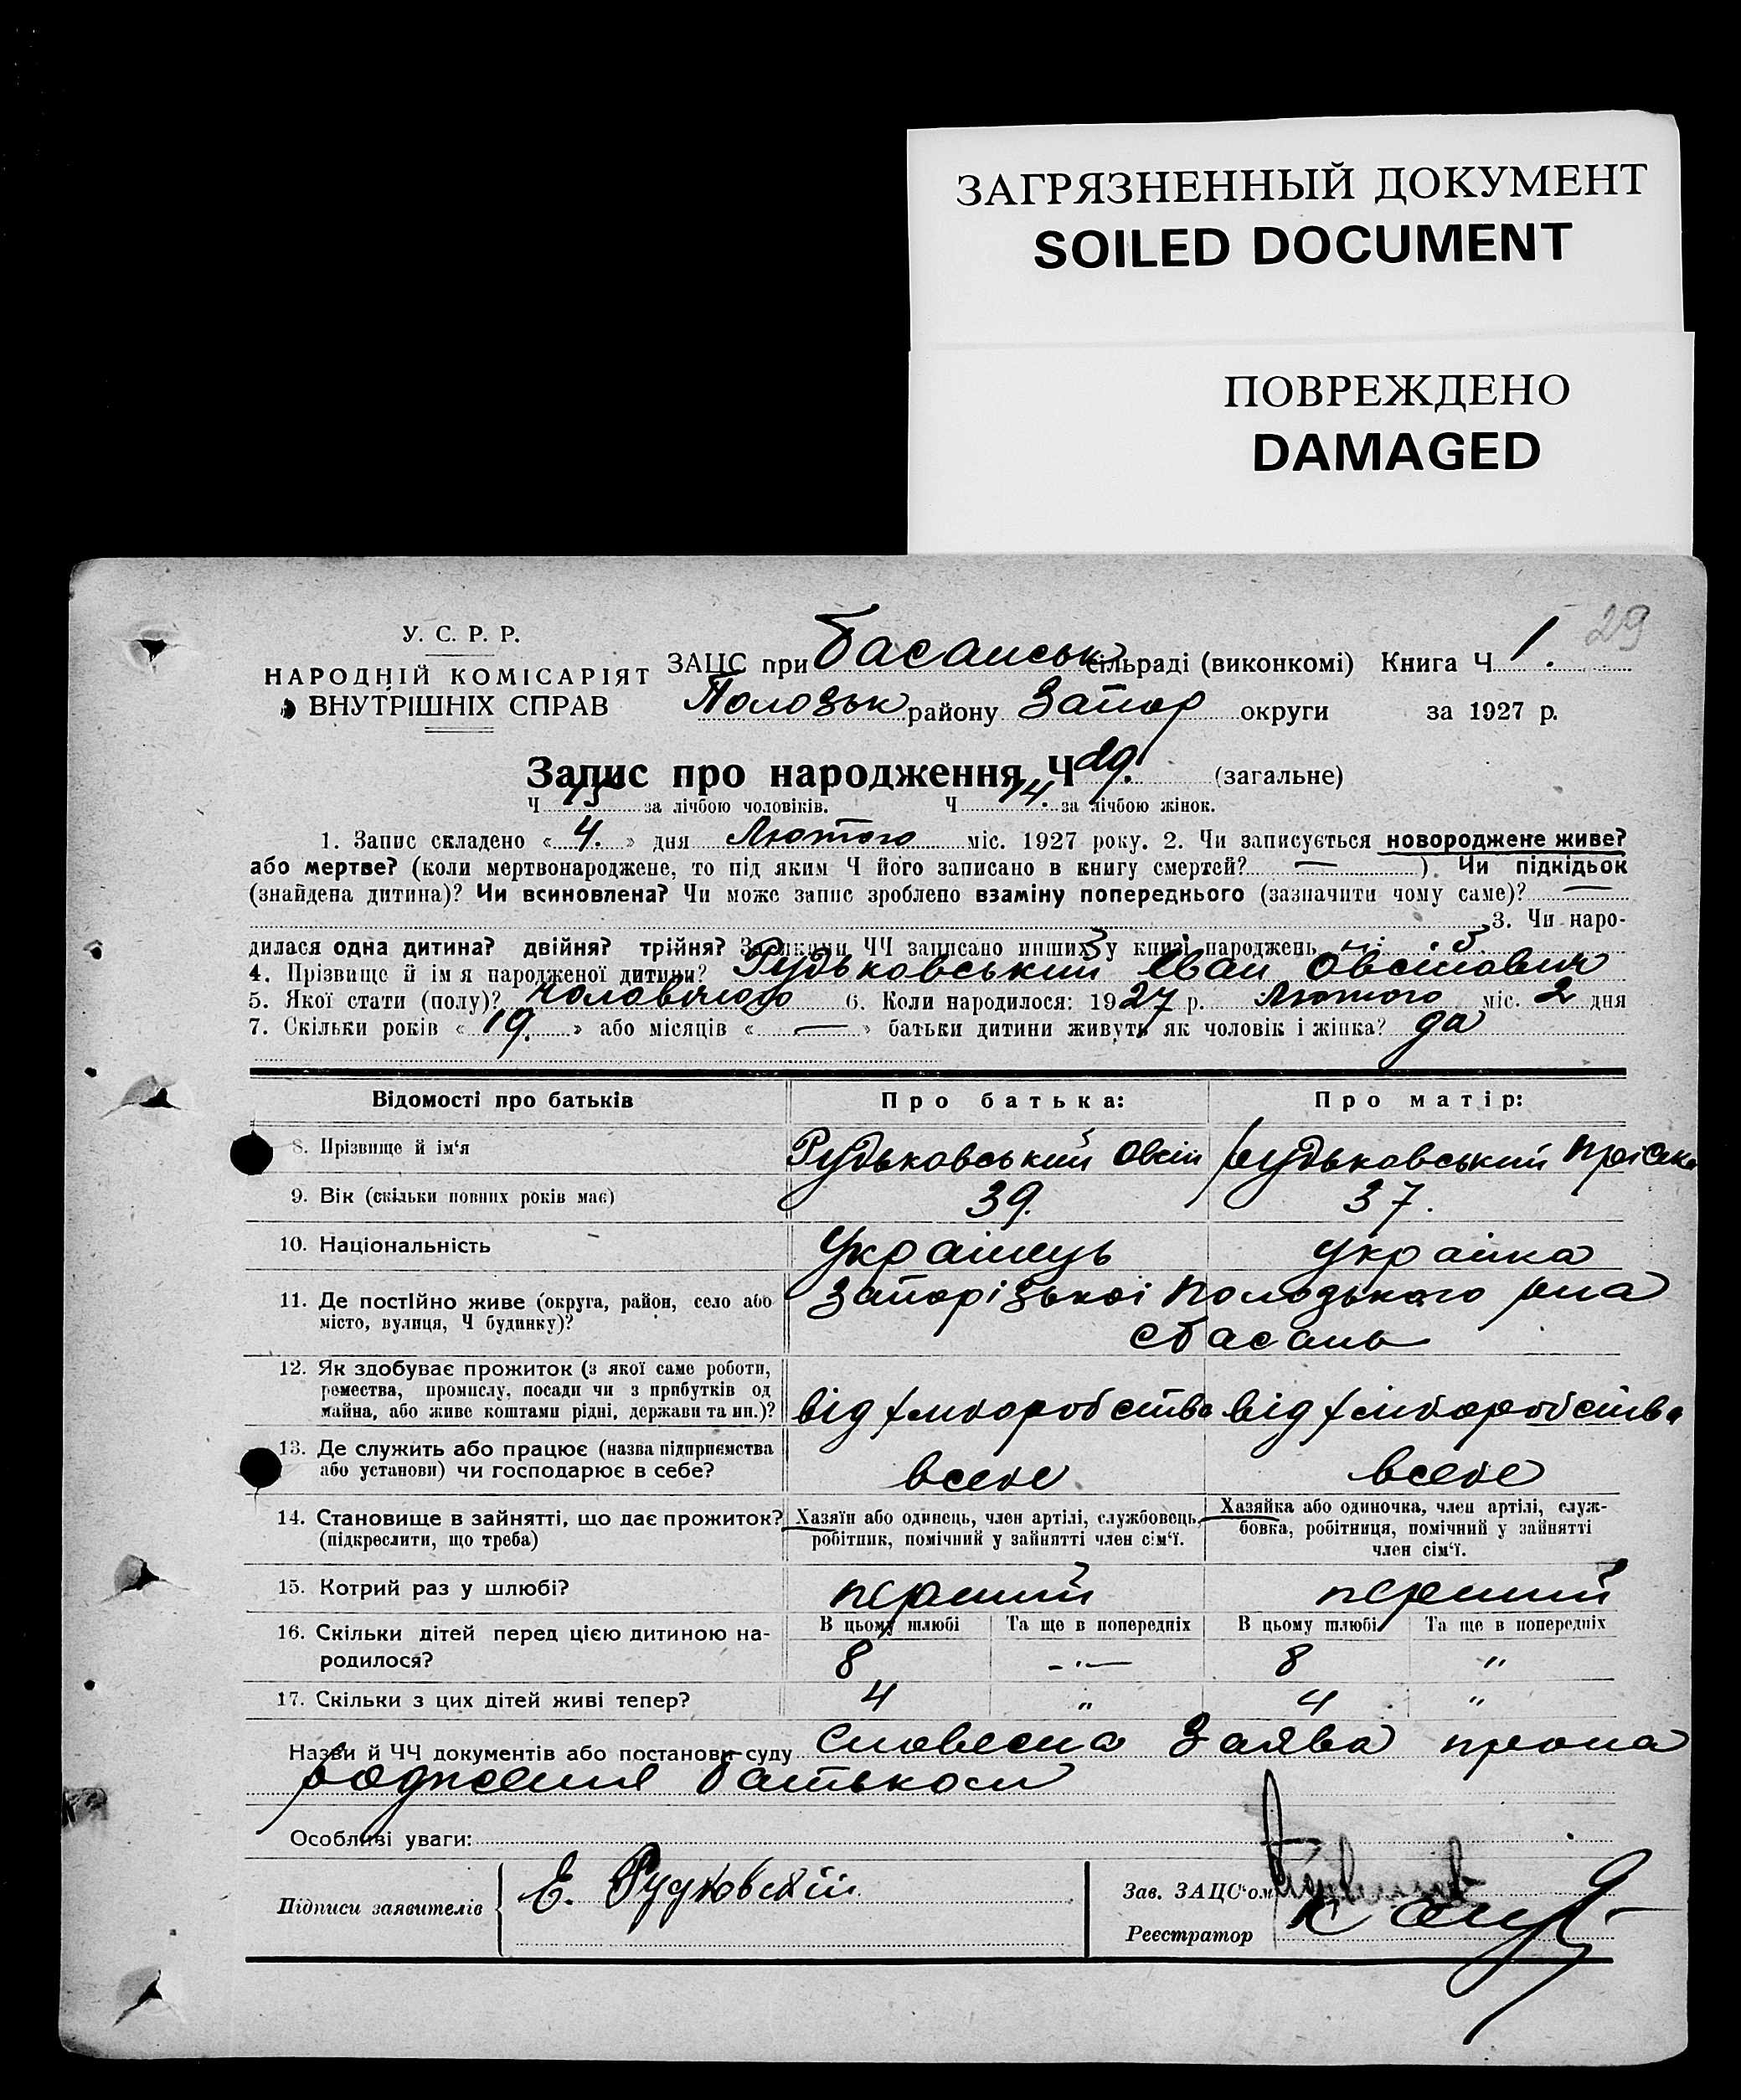 ЗАГРЯЗНЕННЫЙ ДОКУМЕНТ
SOILED DOCUMENT
ПОВРЕЖДЕНО
DAMAGED
29
У. С. Р. Р.
НАРОДНІЙ КОМІСАРІЯТ
ВНУТРІШНІХ СПРАВ
ЗАЦС при Басанськ сільраді (виконкомі) Книга Ч 1.
Полозьк району Запор округи за 1927 р.
Запис про народження Ч 29. (загальне)
Ч 15 за лічбою чоловіків. Ч 14. за лічбою жінок.
1. Запис складено « 4. » дня Лютого міс. 1927 року. 2. Чи записується новороджене живе?
або мертве? (коли мертвонароджене, то під яким Ч його записано в книгу смертей? — ) Чи підкідьок
(знайдена дитина)? Чи всиновлена? Чи може запис зроблено взаміну попереднього (зазначити чому саме)? —
3. Чи наро-
дилася одна дитина? двійня? трійня? За якими ЧЧ записано инших у книзі народжень
4. Прізвище й ім я народженої дитини? Рудьковський Іван Овсійович
5. Якої стати (полу)? чоловічого 6. Коли народилося: 1927 р. Лютого міс. 2 дня
7. Скільки років « 19. » або місяців « — » батьки дитини живуть як чоловік і жінка? да
Відомості про батьків Про батька: Про матір:
8. Прізвище й ім‘я Рудьковський Овсій Рудьковський Пріська
9. Вік (скільки повних років має) 39. 37.
10. Національність Українець Украінка
11. Де постійно живе (округа, район, село або Запорізької Полозького рна
місто, вулиця, Ч будинку)? с Басань
12. Як здобуває прожиток (з якої саме роботи,
ремества, промислу, посади чи з прибутків од
майна, або живе коштами рідні, держави та ин.)? від хліборобства від хліборобства
13. Де служить або працює (назва підприємства
або установи) чи господарює в себе? всебе всебе
14. Становище в зайнятті, що дає прожиток? Хазяїн або одинець, член артілі, службовець, Хазяйка або одиночка, член артілі, служ-
(підкреслити, що треба) робітник, помічний у зайнятті член сім‘ї. бовка, робітниця, помічний у зайнятті
член сім‘ї.
15. Котрий раз у шлюбі? перший перший
В цьому шлюбі Та ще в попередніх В цьому шлюбі Та ще в попередніх
16. Скільки дітей перед цією дитиною на-
родилося? 8 -"- 8 "
17. Скільки з цих дітей живі тепер? 4 " 4 "
Назви й ЧЧ документів або постанови суду Словесна Заява прона
родження батьком
Особливі уваги:
Підписи заявителів Е. Рудковскій
Зав. ЗАЦС‘ом
Реєстратор